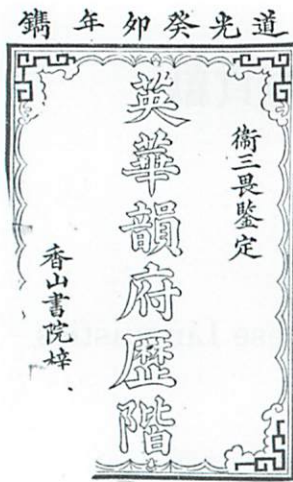 道光癸卯年鐫
衞三畏鑒定
英華韻府歷階
香山書院梓